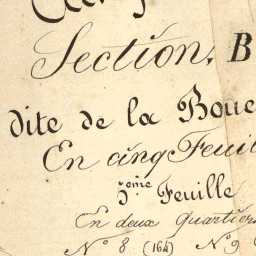 Section, B
dite de la Bouc
En cinq Feuil
3ème Feuille
En deux quartiers
N° 8 (164) N° 9